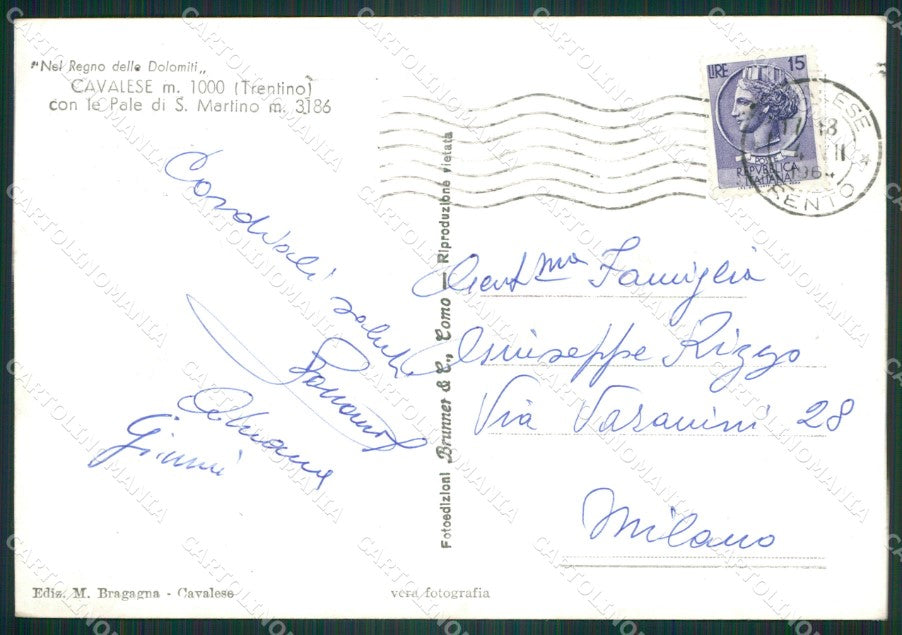 "Nel Regno delle Dolomiti„
CAVALESE m. 1000 (Trentino)
con le Pale di S. Martino m. 3186
LIRE 15
REPVBBLICA
ITALIANA
TRENTO
Cordiali saluti
Gianni
Fotoedizioni Brunner & C., Como — Riproduzione vietata
Gent.ma Famiglia
Giuseppe Rizzo
Via Varanini 28
Milano
Ediz. M. Bragagna - Cavalese
vera fotografia
CARTOLINOMANIA